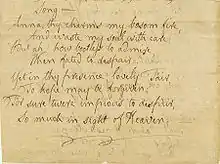 Song—
Anna, thy charms my bosom fire,
And waste my soul with care
But ah how bootless to admire,
When fated to despair.
Yet in thy presence, lovely Fair,
To hope may be forgiven;
For sure twere impious to despair,
So much in sight of Heaven.